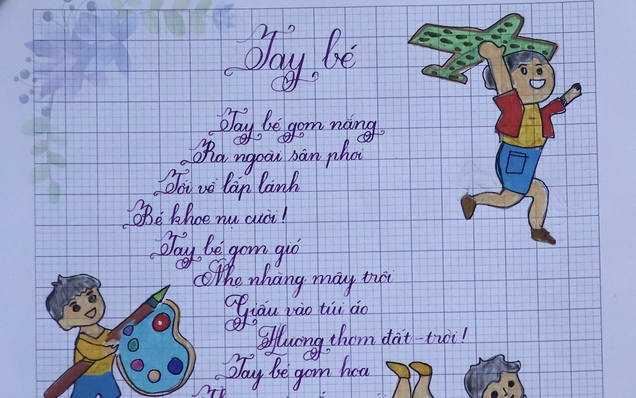 Tay bé
Tay bé gom nắng
Ra ngoài sân phơi
Tối về lấp lánh
Bé khoe nụ cười!
Tay bé gom gió
Nhẹ nhàng mây trôi
Giấu vào túi áo
Hương thơm đất trời!
Tay bé gom hoa